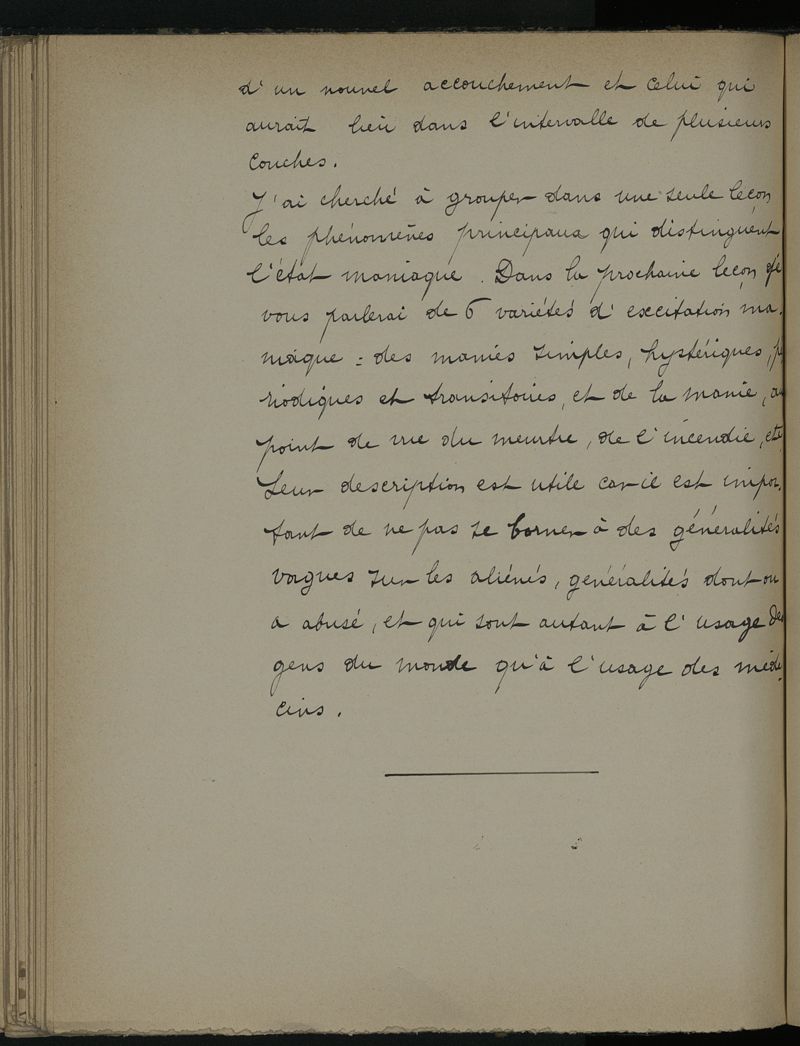 d'un nouvel accouchement et celui qui
aurait lieu dans l'intervalle de plusieurs
couches.
J'ai cherché à grouper dans une seule leçon
les phénomènes principaux qui distinguent
l'état maniaque. Dans la prochaine leçon je
vous parlerai de 6 variétés d'excitation ma-
niaque : des manies simples, hystériques, p
riodiques et transitoires, et de la manie, au
point de vue du meurtre, de l'incendie, etc
Leur description est utile car il est impor-
tant de ne pas se borner à des généralités
vagues sur les aliénés, généralités dont on
a abusé, et qui sont autant à l'usage des
gens du monde qu'à l'usage des méde-
cins.